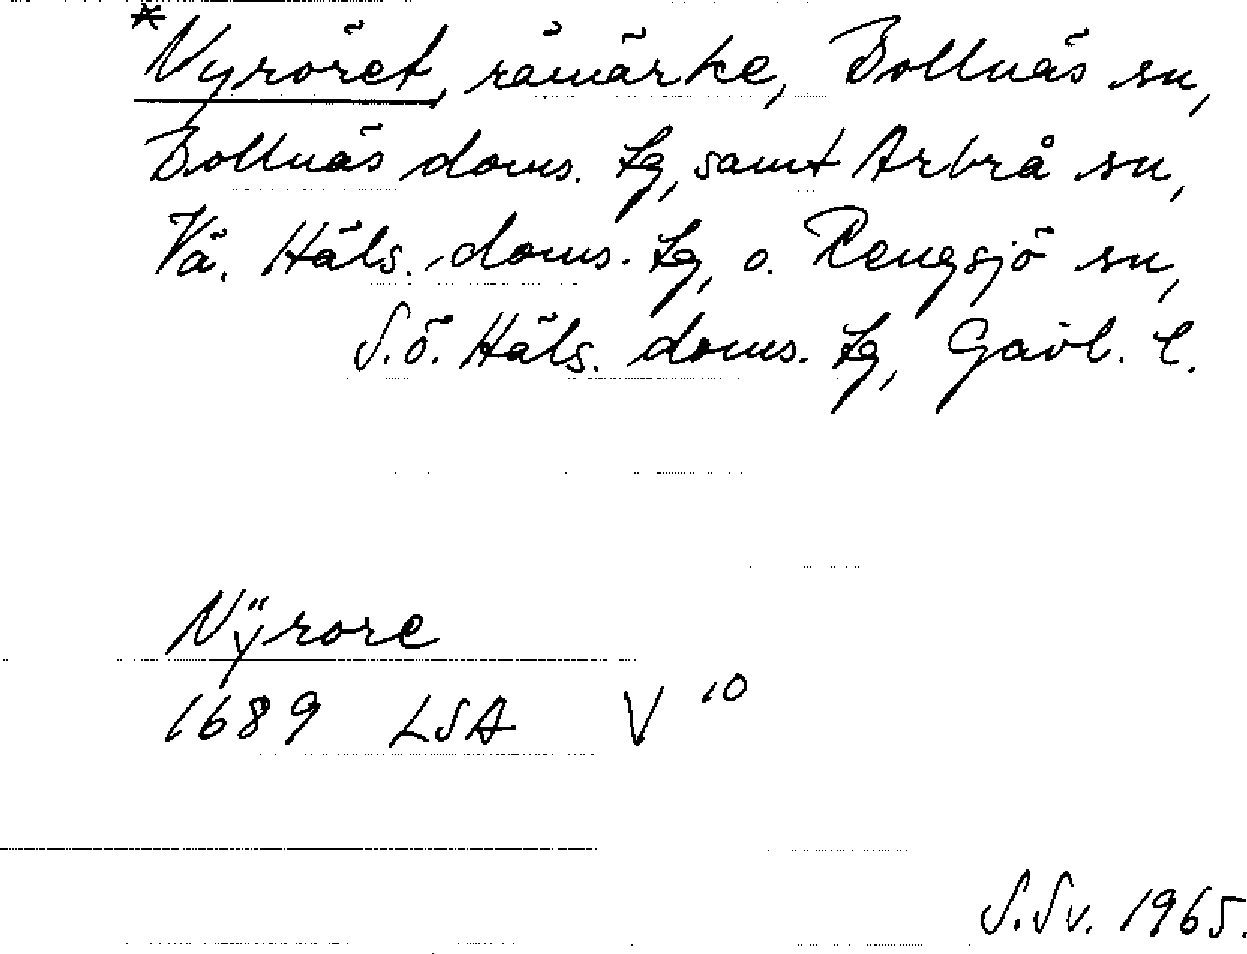 *Nyröret, råmärke, Bollnäs sn,
Bollnäs doms. lg, samt Arbrå sn,
Vä. Häls. doms. lg, o. Rengsjö sn,
S.ö. Häls. doms. lg, Gävl. l.
Nÿrore
1689 LSA V 10
S.Sv. 1965.